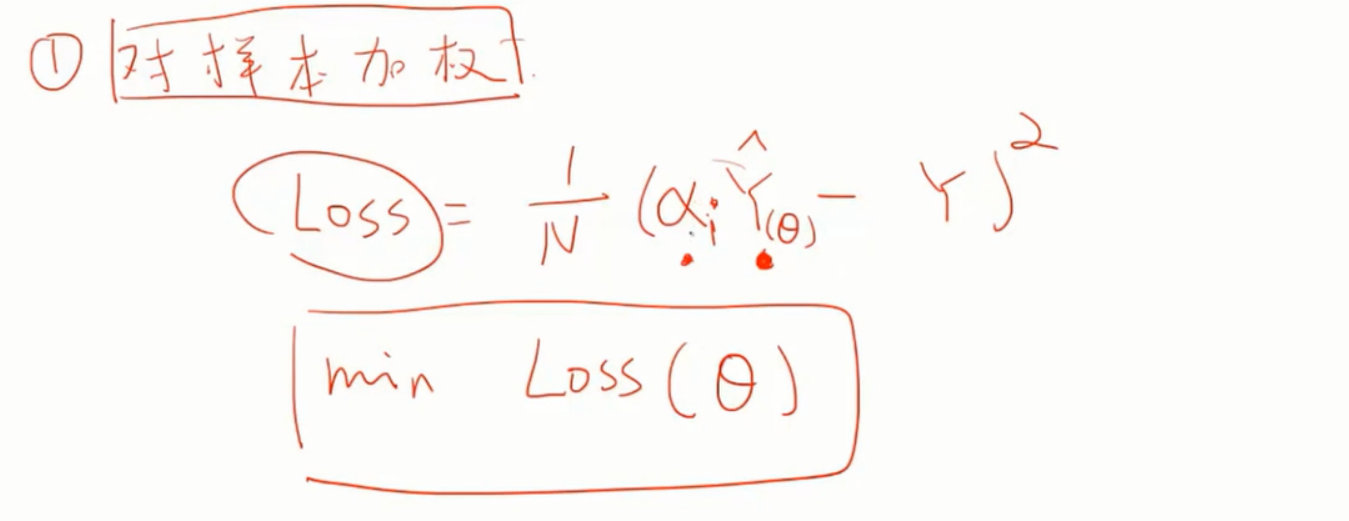 ① 对样本加权
Loss = 1/N (αᵢ Ŷ(θ) - Y)²
min Loss(θ)